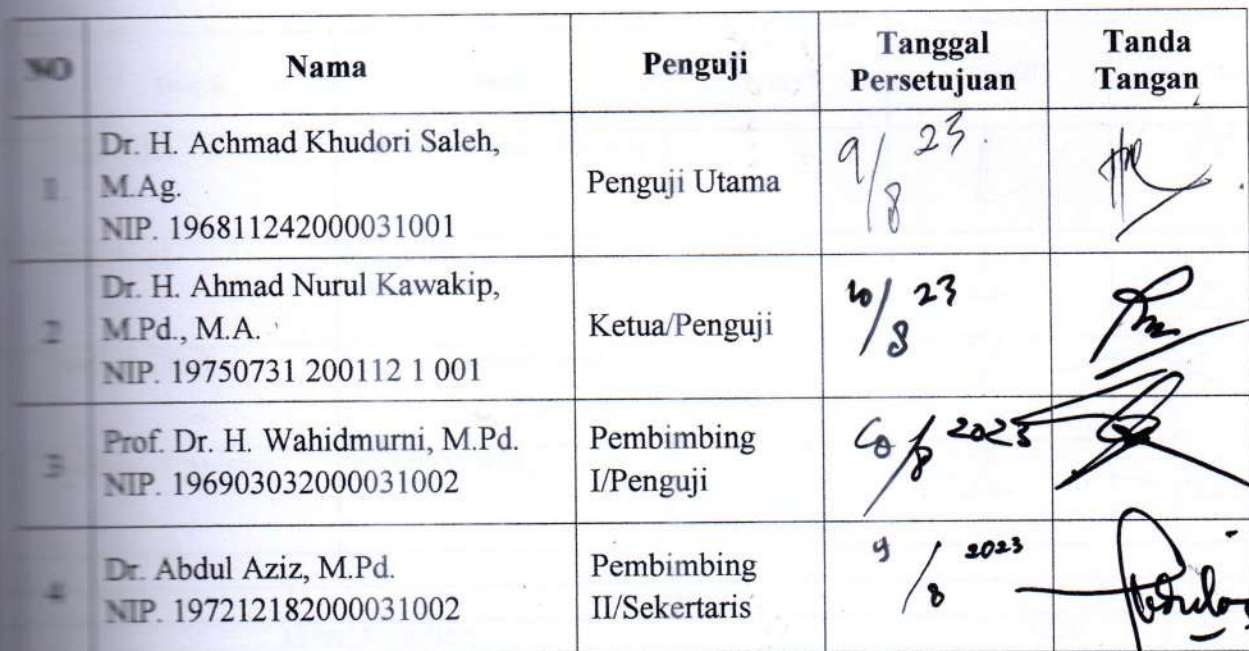 NO Nama Penguji Tanggal Persetujuan Tanda Tangan
1 Dr. H. Achmad Khudori Saleh,
M.Ag.
NIP. 196811242000031001
Penguji Utama
9/8 23
2 Dr. H. Ahmad Nurul Kawakip,
M.Pd., M.A.
NIP. 19750731 200112 1 001
Ketua/Penguji
10/8 23
3 Prof. Dr. H. Wahidmurni, M.Pd.
NIP. 196903032000031002
Pembimbing
I/Penguji
10/8 2023
4 Dr. Abdul Aziz, M.Pd.
NIP. 197212182000031002
Pembimbing
II/Sekertaris
9/8 2023